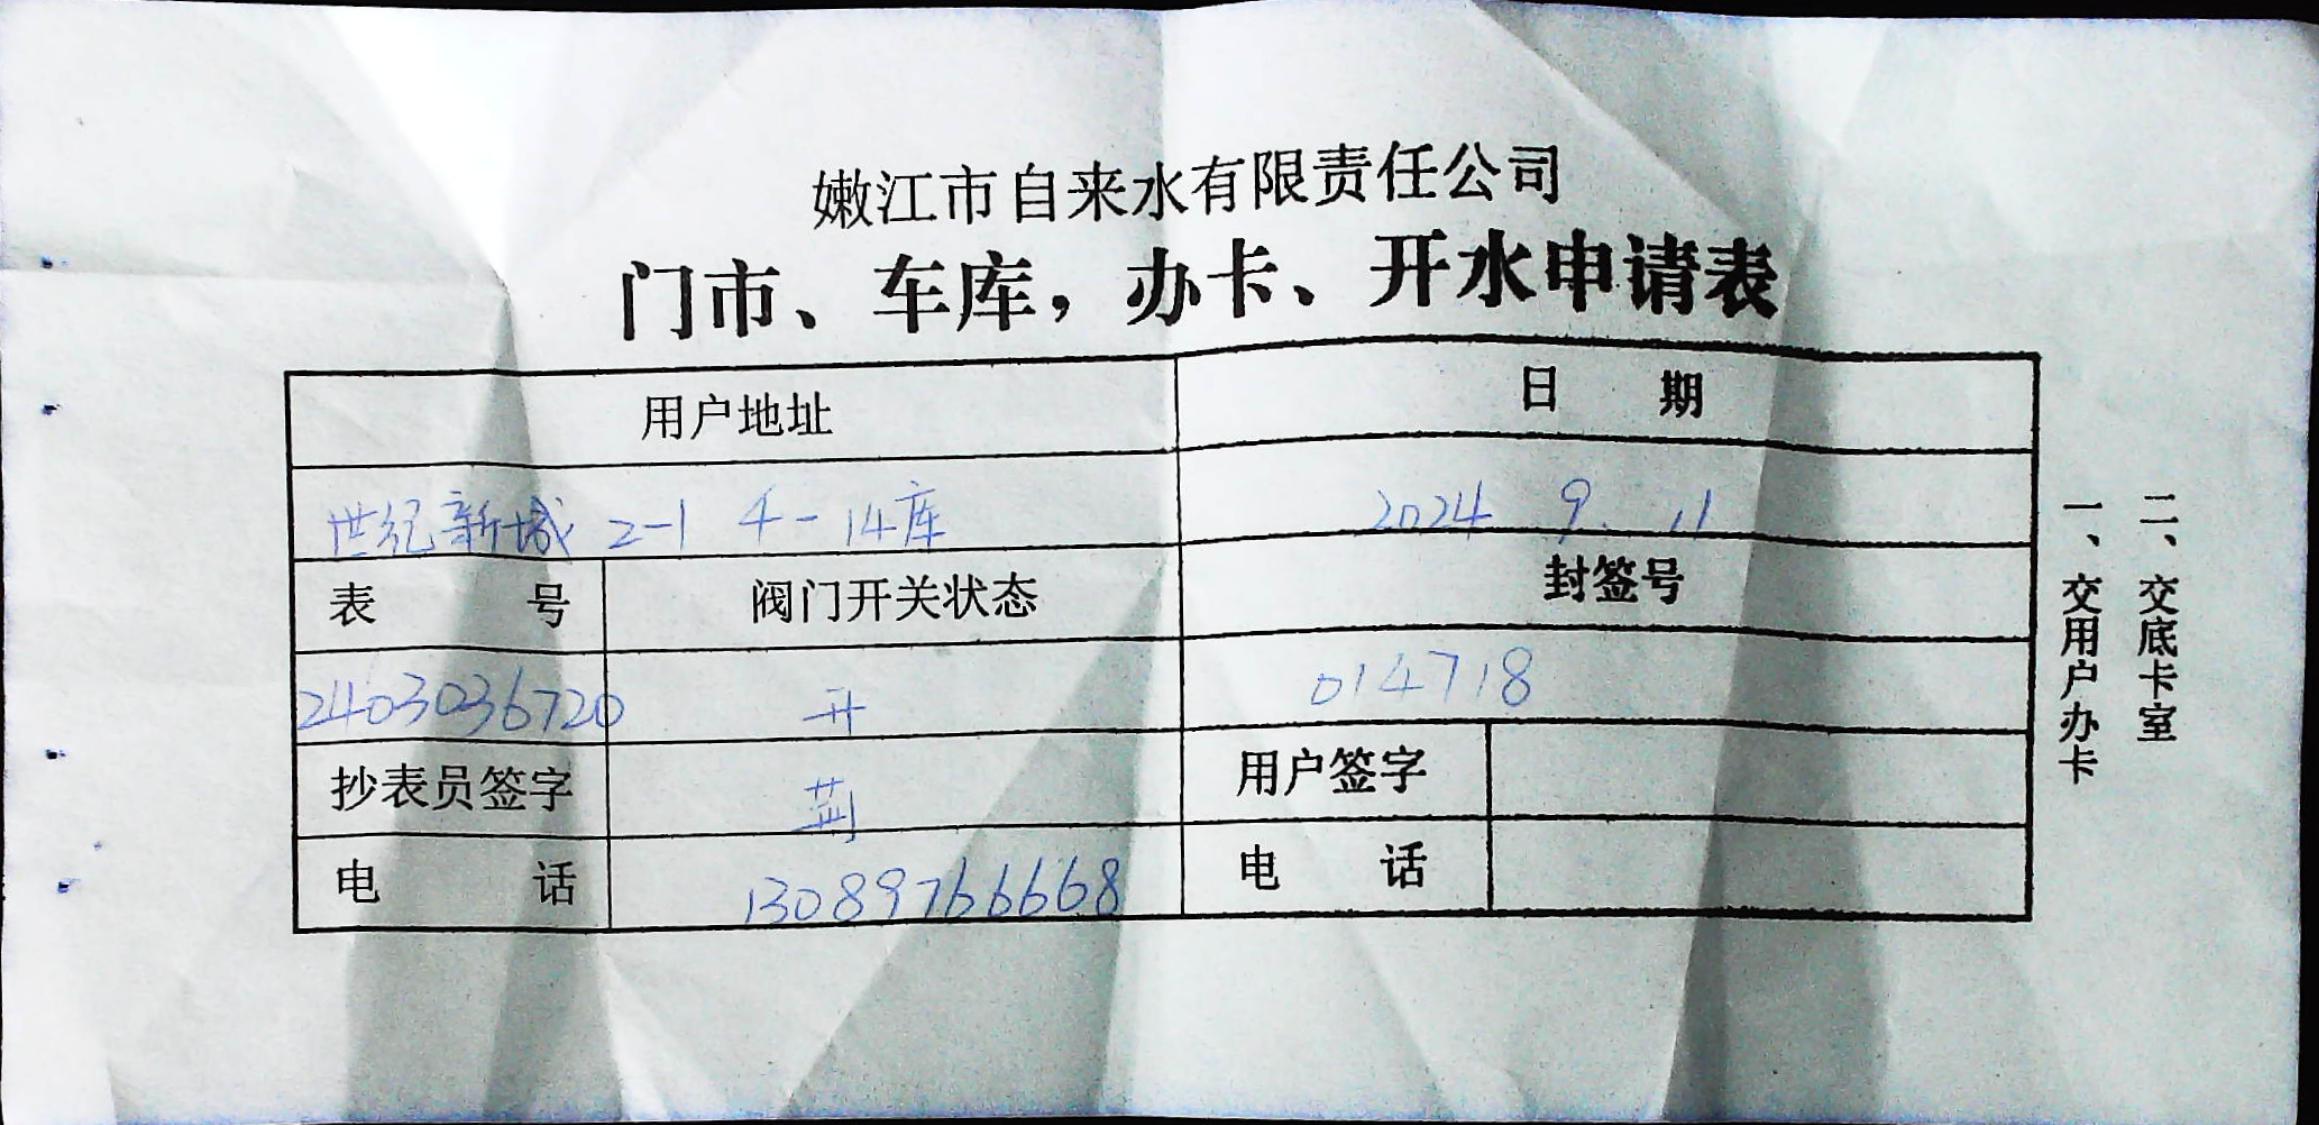 嫩江市自来水有限责任公司
门市、车库，办卡、开水申请表
用户地址 日 期
世纪新城 2-1 4-14库 2024 9. 11
表 号 阀门开关状态 封签号
2403036720 开 014718
抄表员签字 用户签字
电 话 13089766668 电 话
一、交用户办卡
二、交底卡室